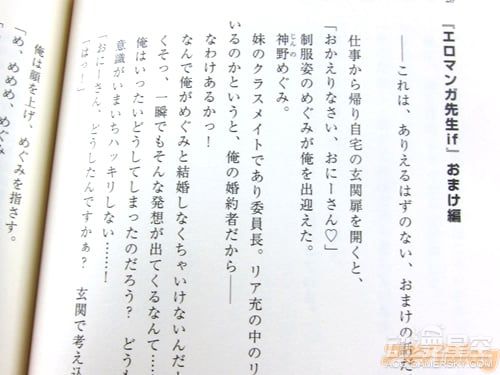 『エロマンガ先生if』おまけ編
――これは、ありえるはずのない、おまけの
仕事から帰り自宅の玄関扉を開くと、
「おかえりなさい、おにーさん♡」
制服姿のめぐみが俺を出迎えた。
じんの
神野めぐみ。
妹のクラスメイトであり委員長。リア充の中のリ
いるのかというと、俺の婚約者だから――
なわけあるかっ！
なんで俺がめぐみと結婚しなくちゃいけないんだ
くそっ、一瞬でもそんな発想が出てくるなんて……
俺はいったいどうしてしまったのだろう？ どうも
意識がいまいちハッキリしない……！
「おにーさん、どうしたんですかぁ？ 玄関で考え込
「はっ！」
俺は顔を上げ、めぐみを指さす。
「め、めめめ、めぐみ
ACG.GAMERSKY.COM